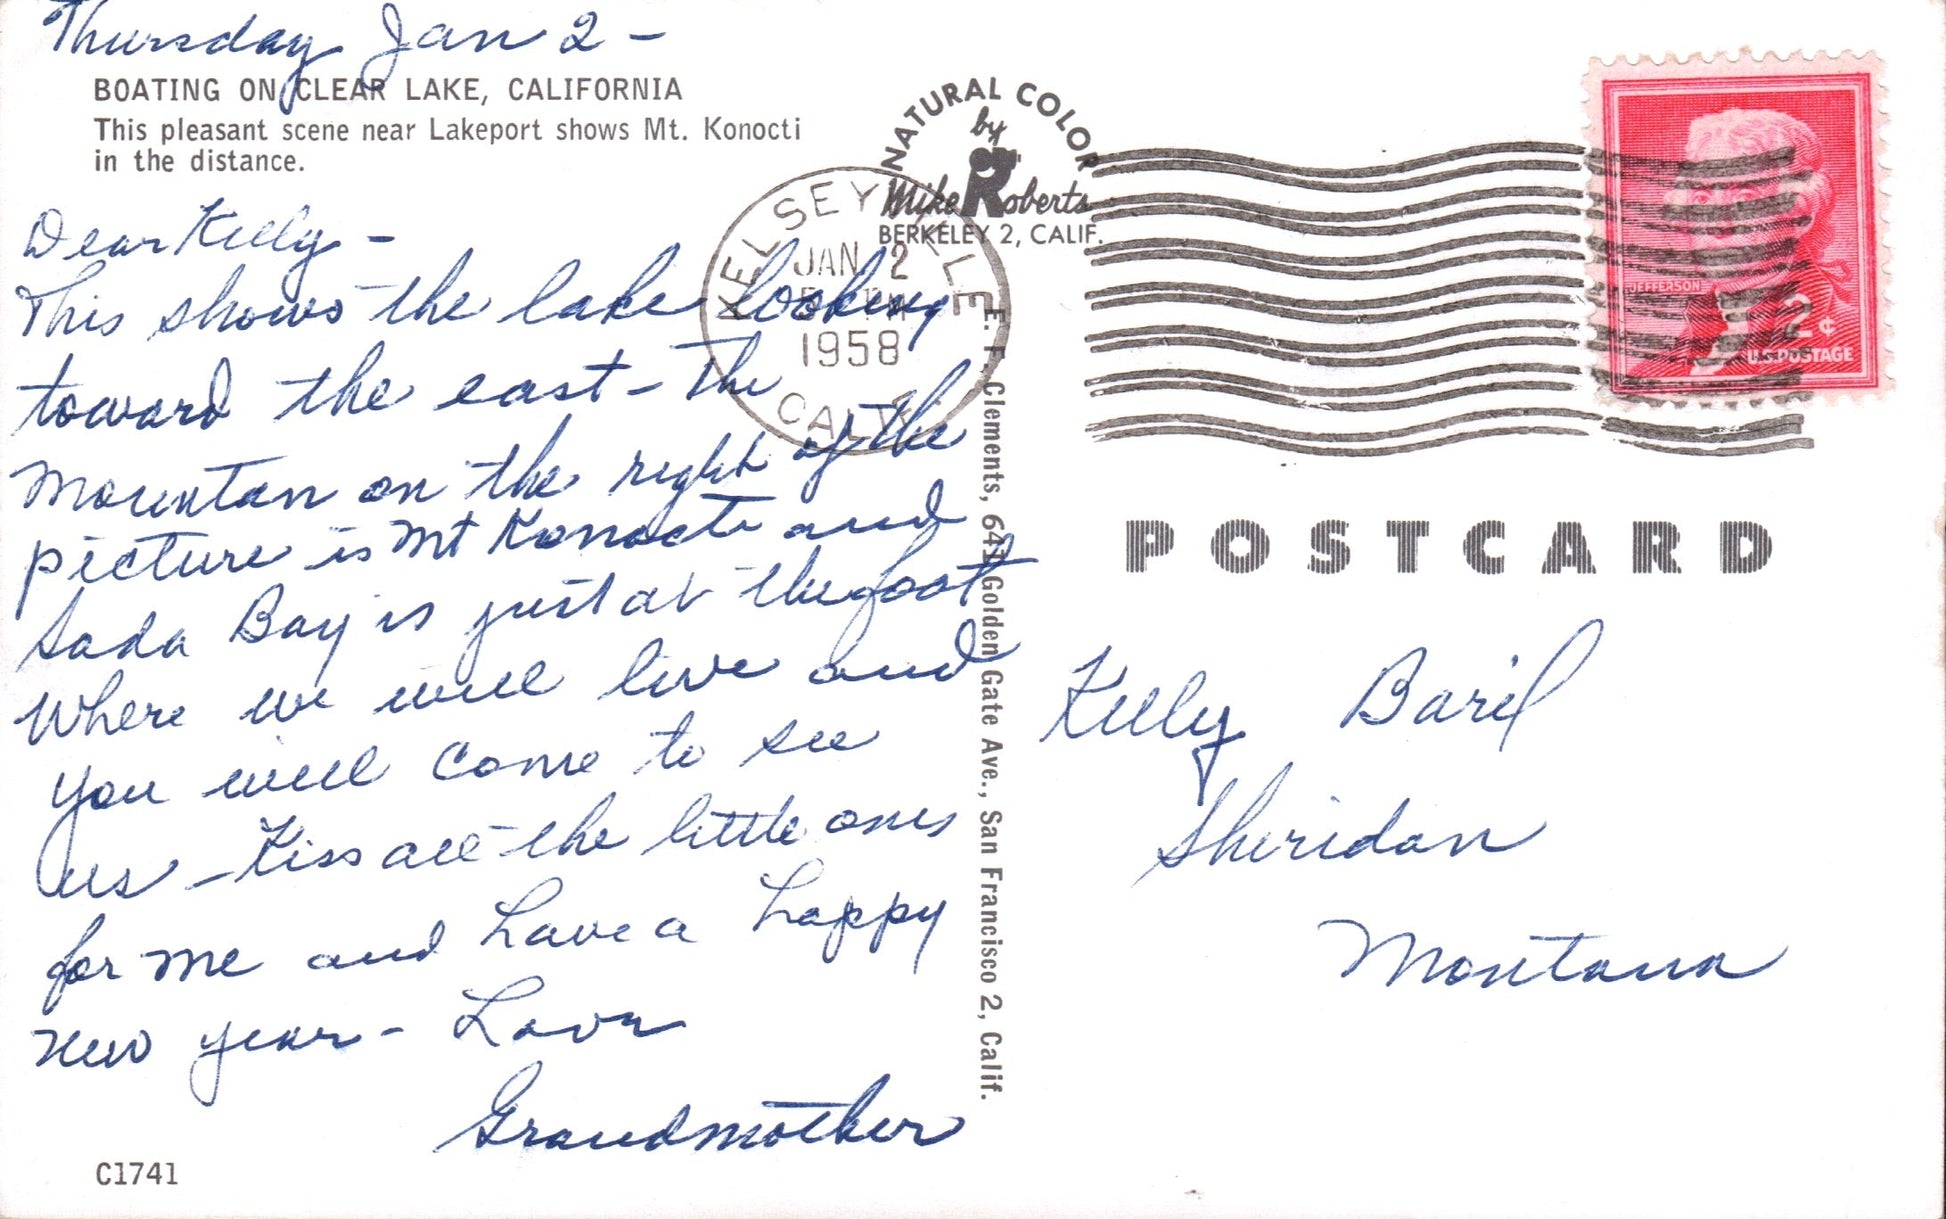 Thursday Jan 2 -
BOATING ON CLEAR LAKE, CALIFORNIA
This pleasant scene near Lakeport shows Mt. Konocti
in the distance.
Dear Kelly -
This shows the lake looking
toward the east - The
Mountain on the right of the
picture is Mt Konocti and
Soda Bay is just at the foot
Where we will live and
you will come to see
us - Kiss all the little ones
for me and have a happy
new year - Love
Grandmother
C1741
NATURAL COLOR
by
Mike Roberts
BERKELEY 2, CALIF.
KELSEYVILLE
JAN 2
1958
CALIF.
E. F. Clements, 641 Golden Gate Ave., San Francisco 2, Calif.
JEFFERSON
2¢
U.S. POSTAGE
POSTCARD
Kelly Baril
Sheridan
Montana